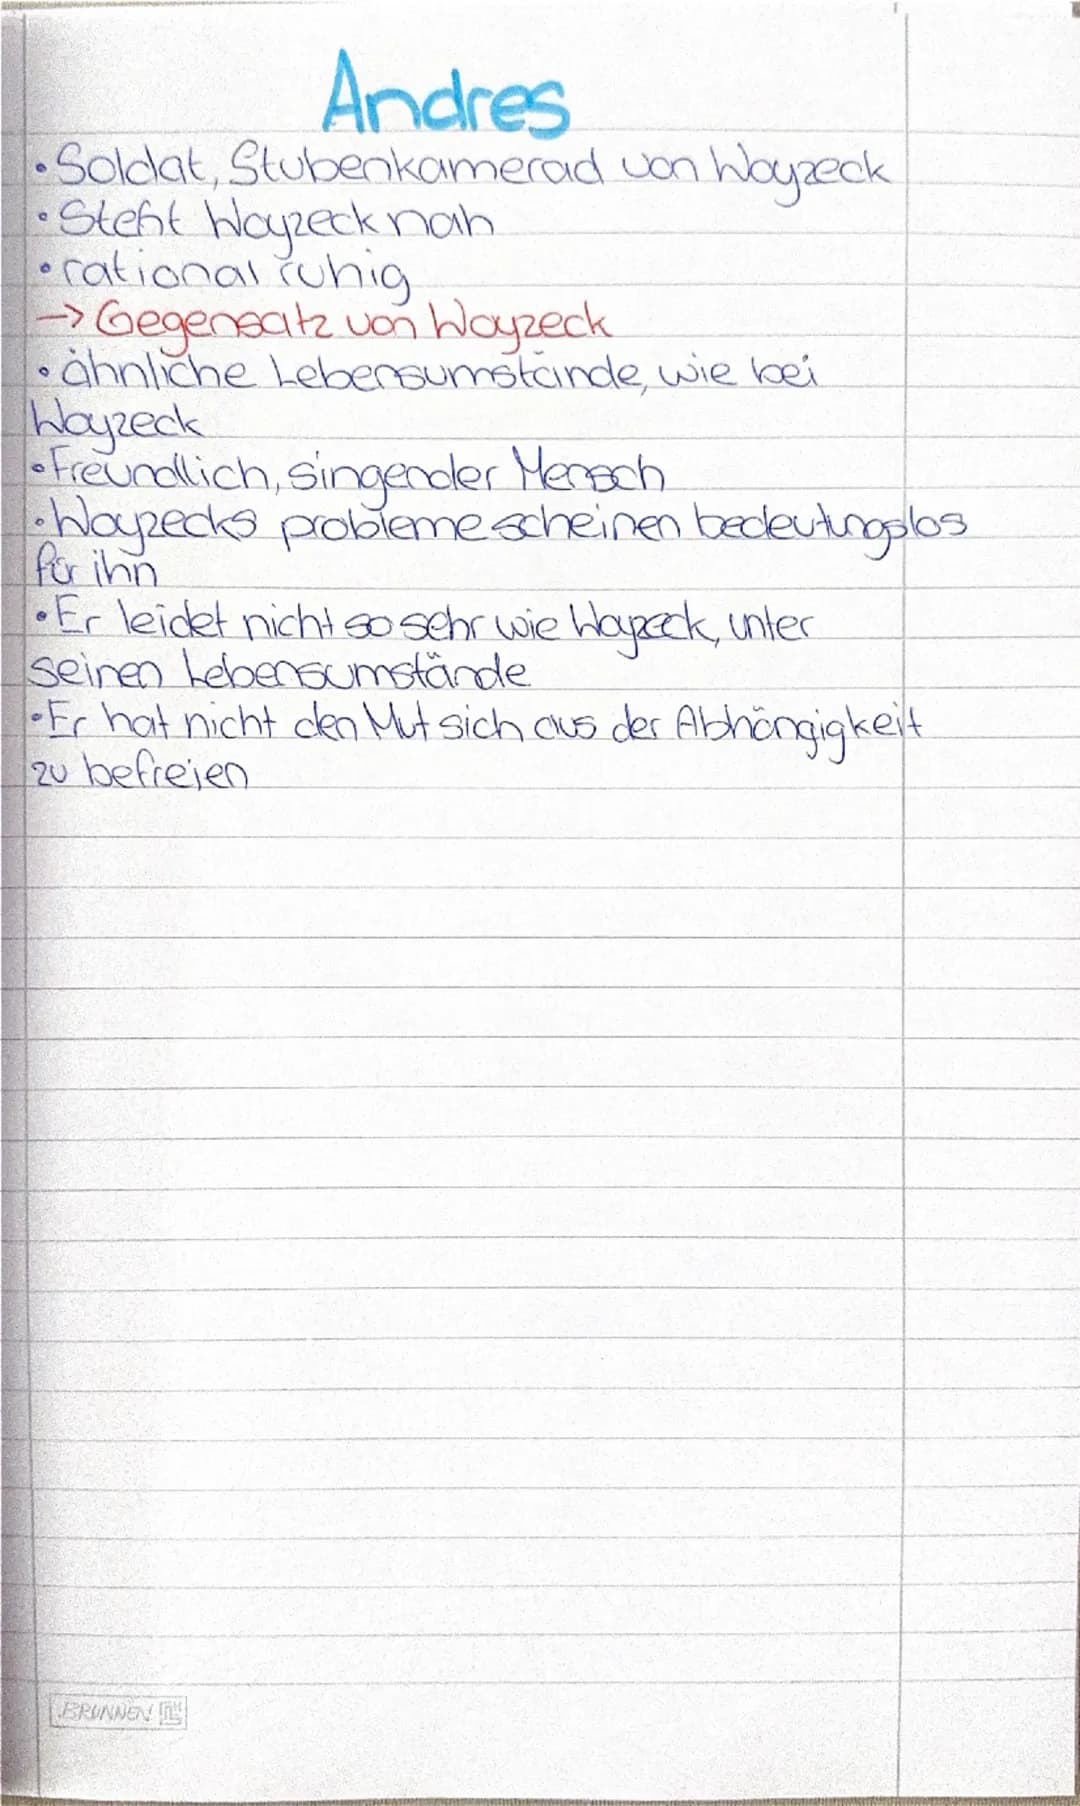 Andres
• Soldat, Stubenkamerad von Woyzeck
• Steht Woyzeck nah
• rational ruhig
-> Gegensatz von Woyzeck
• ähnliche Lebensumstände, wie bei
Woyzeck
• Freundlich, singender Mensch
• Woyzecks probleme scheinen bedeutungslos
für ihn
• Er leidet nicht so sehr wie Woyzeck, unter
seinen Lebensumstände
• Er hat nicht den Mut sich aus der Abhängigkeit
zu befreien
BRUNNEN